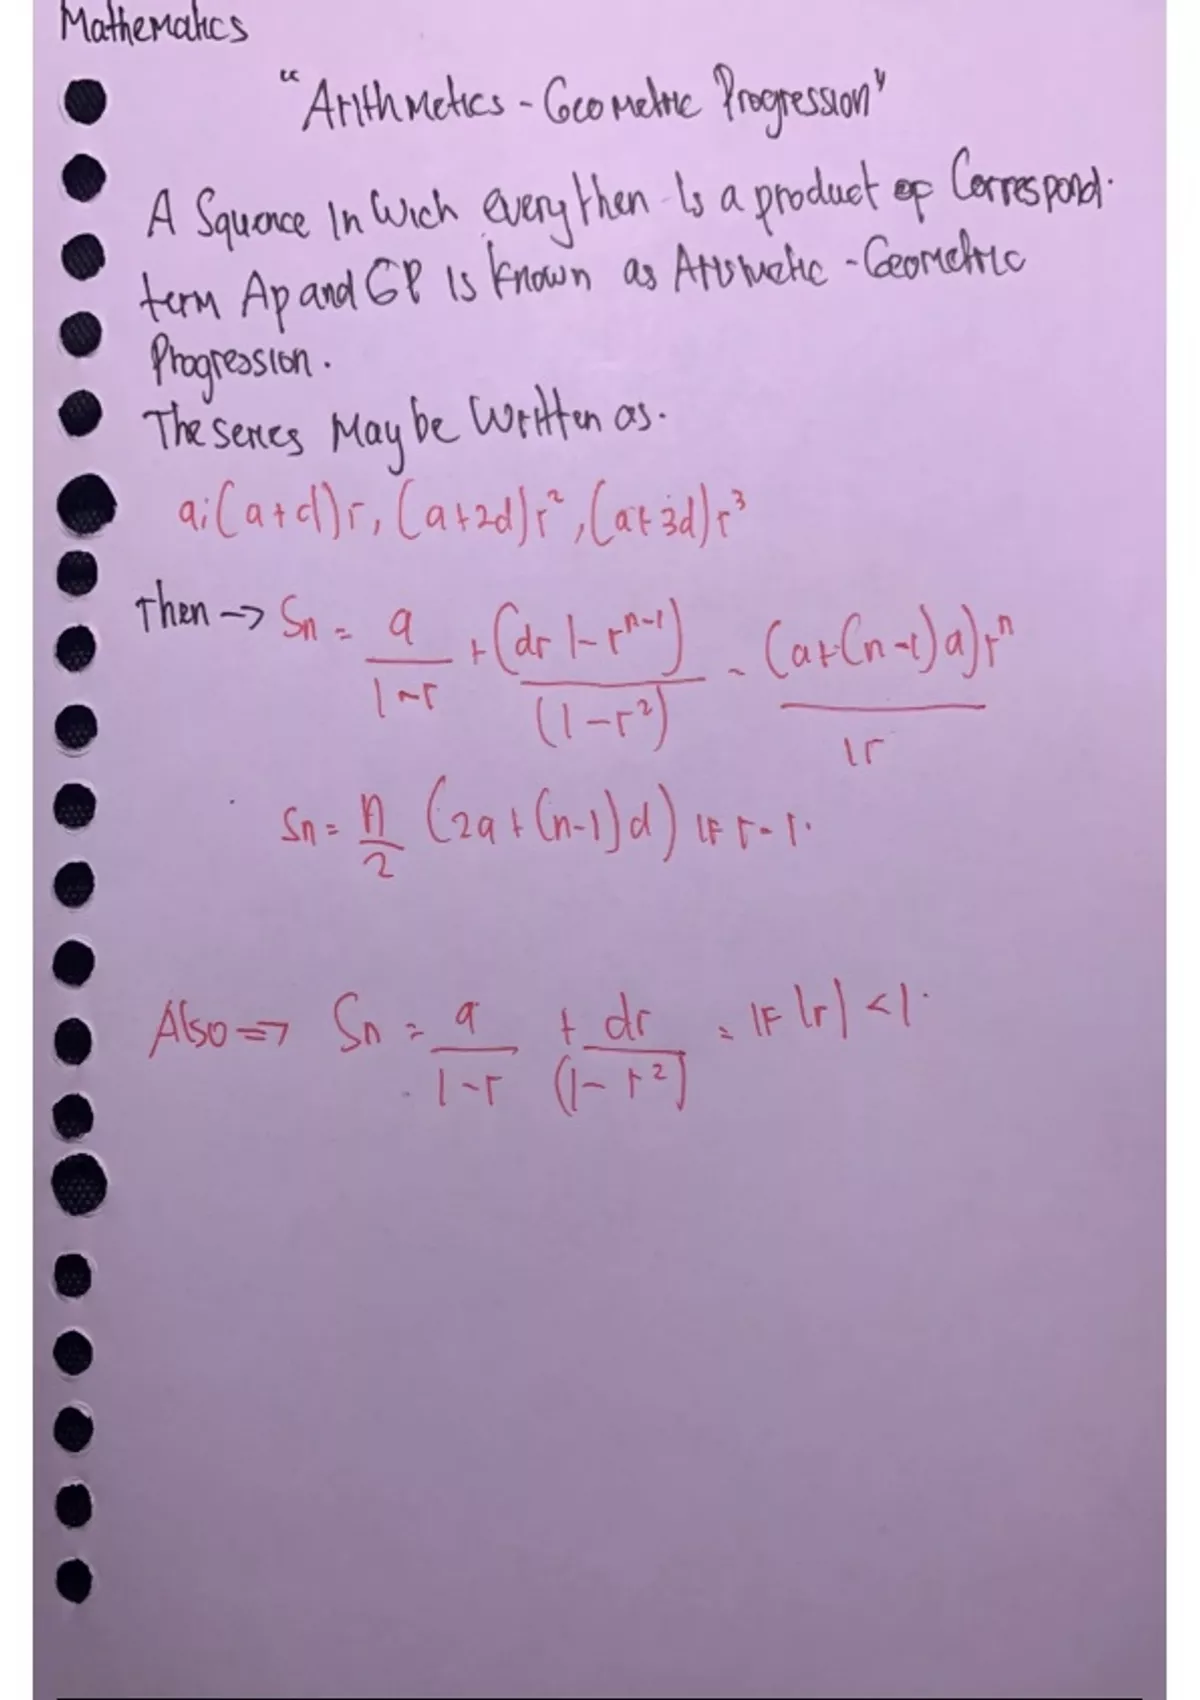 Mathematics
"Arithmetics - Geometric Progression"
A Squence In Wich every then Is a product of Correspond.
term Ap and GP Is Known as Arismetic - Geometric
Progression.
The series May be Written as.
a; (a+d)r, (a+2d)r², (a+3d)r³
Then → Sn = a/1-r + (dr 1-rⁿ⁻¹)/(1-r²) - (a+(n-1)a)rⁿ/1r
Sn = n/2 (2a+(n-1)d) IF r-1.
Also => Sn = a/1-r + dr/(1-r²) = IF |r| <1.